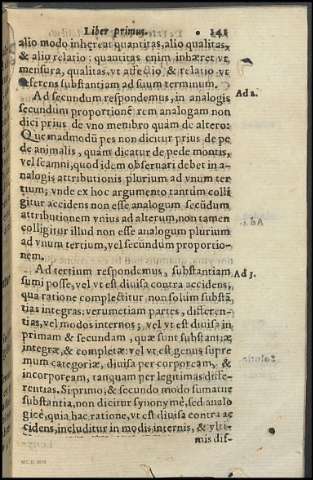 Liber primus. 141
alio modo inhęreat quantitas, alio qualitas,
& alio relatio: quantitas enim inhæret vt
mensura, qualitas, vt affectio & relatio vt
referens substantiam ad suum terminum.
Ad secundum respondemus, in analogis Ad 2.
secundum proportionē rem analogam non
dici prius de vno menibro quàm de altero:
Quemadmodū pes non dicitur prius de pe
de animalis, quàm dicatur de pede montis,
vel scanni, quod idem obseruari debet in a-
nalogis attributionis plurium ad vnum ter
tium; vnde ex hoc argumento tantùm colli
gitur accidens non esse analogum secūdum
attributionem vnius ad alterum, non tamen
colligitur illud non esse analogum plurium
ad vnum tertium, vel secundum proportio-
nem.
Ad tertium respondemus, substantiam Ad 3.
sumi posse, vel vt est diuisa contra accidens,
qua ratione complectitur non solùm substā,
tias integras: verumetiam partes, differen-
tias, vel modos internos; vel vt est diuisa in
primam & secundam, quæ sunt substantiæ
integræ, & completæ: vel vt est genus supre
mum categoriæ, diuisa per corpoream, &
incorpoream, tanquam per legitimas diffe-
rentias. Si primo, & secundo modo sumatur
substantia, non dicitur synonymè, sed analo
gicè, quia hac ratione, vt est diuisa contra ac
cidens, includitur in modis internis, & vlti-
mis dif-